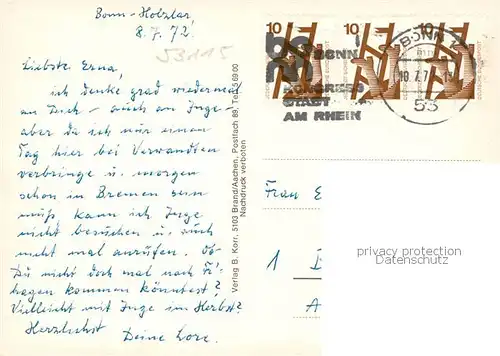 Bonn-Holzlar,
8.7.72.
53115
Liebste Erna,
ich denke grad wiedermal
an Dich - auch an Inge
aber da ich nur einen
Tag hier bei Verwandten
verbringe u. morgen
schon in Bremen sein
muß, kann ich Inge
nicht besuchen u. auch
nicht mal anrufen. Ob
Du nicht doch mal nach
hagen kommen könntest?
Vielleicht mit Inge im Herbst?
Herzlichst
Deine Lore.
Verlag B. Korr, 5103 Brand/Aachen, Postfach 89, Tel. 36900
Nachdruck verboten
10 10 10
BONN
KONGRESS
STADT
AM RHEIN
BONN
10.7.7
53
Frau E
1
privacy protection
Datenschutz